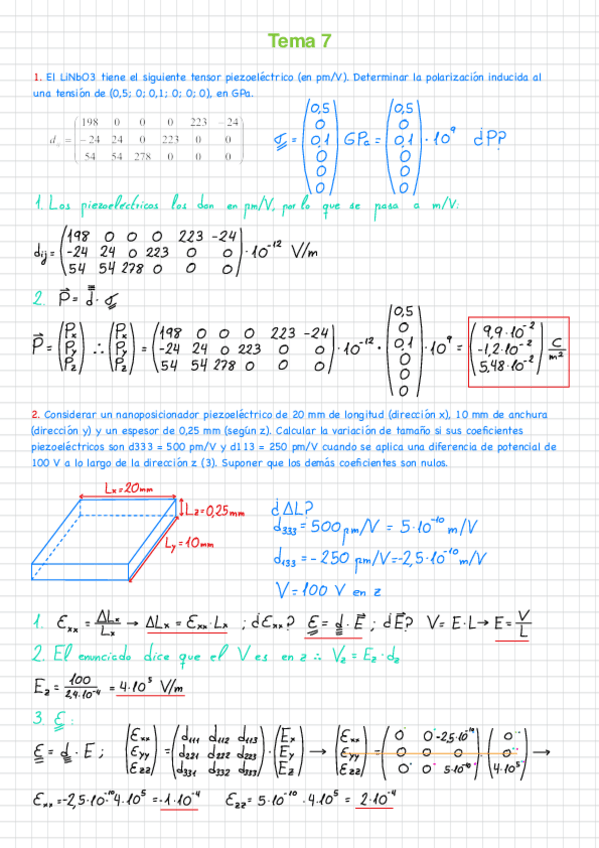 Tema 7
1. El LiNbO3 tiene el siguiente tensor piezoeléctrico (en pm/V). Determinar la polarización inducida al
una tensión de (0,5; 0; 0,1; 0; 0; 0), en GPa.
d = (198 0 0 0 223 -24
-24 24 0 223 0 0
54 54 278 0 0 0)
σ = (0,5 0 0,1 0 0 0) GPa = (0,5 0 0,1 0 0 0) · 10⁹ ¿P?
1. Los piezoeléctricos los dan en pm/V, por lo que se pasa a m/V:
dij = (198 0 0 0 223 -24
-24 24 0 223 0 0
54 54 278 0 0 0) · 10⁻¹² V/m
2. P = d · σ
P = (Px Py Pz) ∴ (Px Py Pz) = (198 0 0 0 223 -24
-24 24 0 223 0 0
54 54 278 0 0 0) · 10⁻¹² · (0,5 0 0,1 0 0 0) · 10⁹ = (9,9·10⁻² -1,2·10⁻² 5,48·10⁻²) C/m²
2. Considerar un nanoposicionador piezoeléctrico de 20 mm de longitud (dirección x), 10 mm de anchura
(dirección y) y un espesor de 0,25 mm (según z). Calcular la variación de tamaño si sus coeficientes
piezoeléctricos son d333 = 500 pm/V y d113 = 250 pm/V cuando se aplica una diferencia de potencial de
100 V a lo largo de la dirección z (3). Suponer que los demás coeficientes son nulos.
Lx=20mm
Lz=0,25mm
Ly=10mm
¿ΔL?
d333 = 500 pm/V = 5·10⁻¹⁰ m/V
d133 = -250 pm/V = -2,5·10⁻¹⁰ m/V
V = 100 V en z
1. Exx = ΔLx/Lx → ΔLx = Exx·Lx ; ¿Exx? E = d · E ; ¿E? V = E·L → E = V/L
2. El enunciado dice que el V es en z ∴ Vz = Ez·dz
Ez = 100/2,4·10⁻⁴ = 4·10⁵ V/m
3. E:
E = d · E ; (Exx Eyy Ezz) = (d111 d112 d113
d221 d222 d223
d331 d332 d333) · (Ex Ey Ez) → (Exx Eyy Ezz) = (0 0 -2,5·10⁻¹⁰
0 0 0
0 0 5·10⁻¹⁰) · (0 0 4·10⁵) →
Exx = -2,5·10⁻¹⁰·4·10⁵ = -1·10⁻⁴ Ezz = 5·10⁻¹⁰ · 4·10⁵ = 2·10⁻⁴